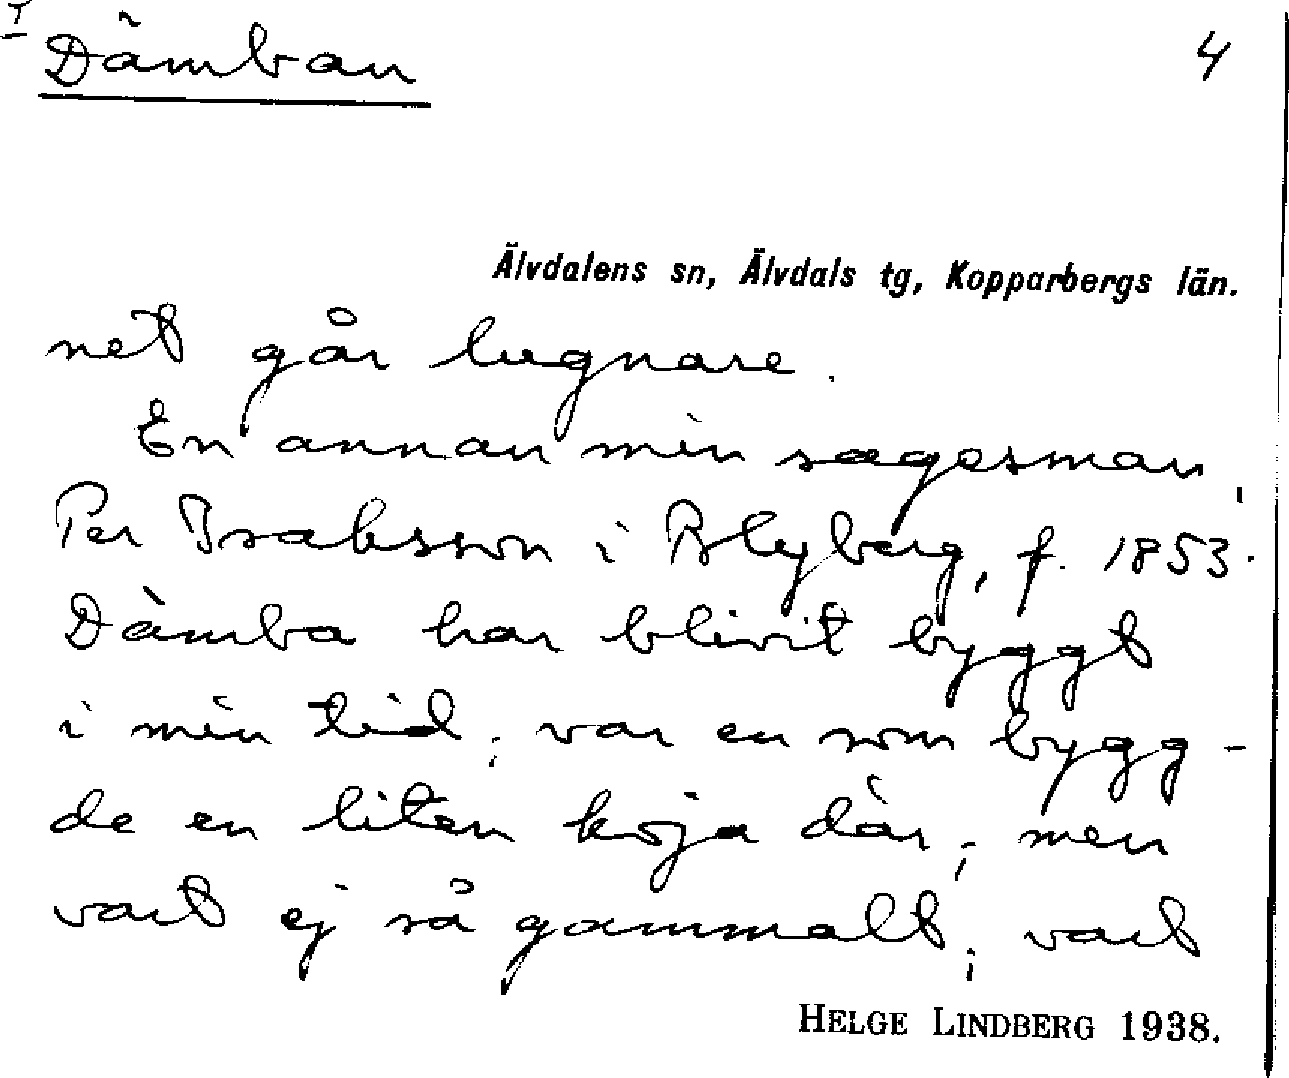 Dämban 4
Älvdalens sn, Älvdals tg, Kopparbergs län.
net går lugnare.
En annan min sagesman,
Per Isaksson i Blyberg, f. 1853.
Dämba har blivit byggt
i min tid; var en som bygg-
de en liten koja där; men
vart ej så gammalt; vart
HELGE LINDBERG 1938.